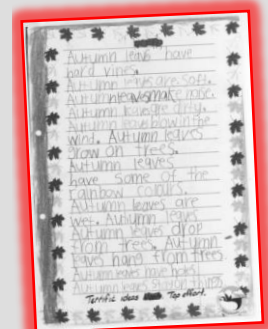 Autumn leavs have
hard vines.
Autumn leaves are soft.
Autumn leaves make noise.
Autumn leaves are dirty.
Autumn leavs blow in the
wind. Autumn leaves
grow on trees.
Autumn leaves
have some of the
rainbow colours.
Autumn leaves are
wet. Autumn leavs
Autumn leaves drop
from trees. Autumn
leavs hang from trees.
Autumn leaves have holes.
Autumn leaves
Terrific ideas Top effort.